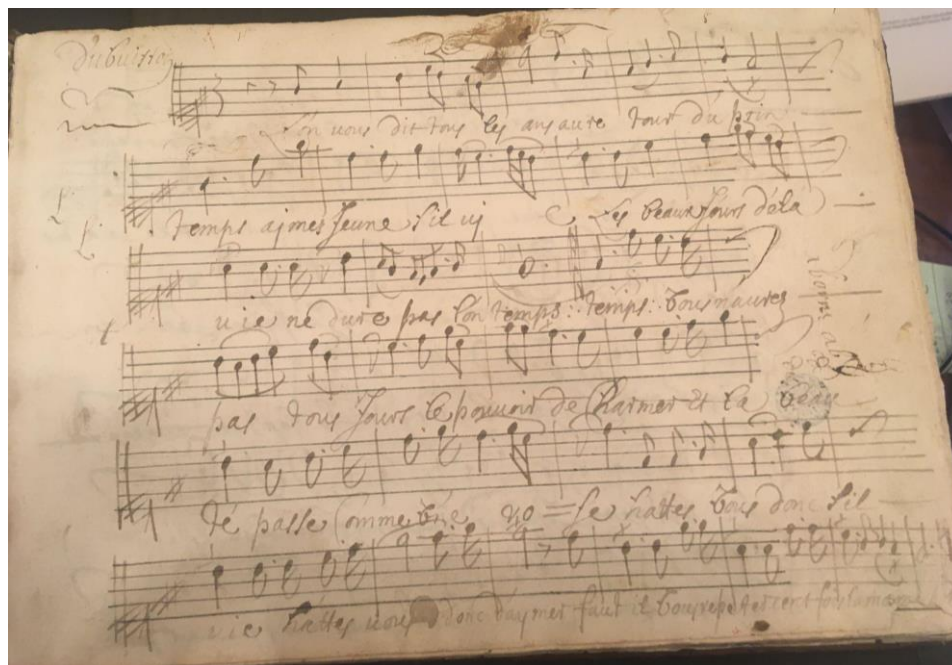 dubuisson
L'on vous dit tous les ans au re tour du prin
temps aimes jeune sil vi Les beaux jours de la
vie ne dure pas lon temps : temps : vous naures
pas tous jours le pouvoir de charmer et la beau
té passe comme une ro = se hattes vous donc sil
vie hattes vous donc daymer faut il vous repeter cent fois la mesme